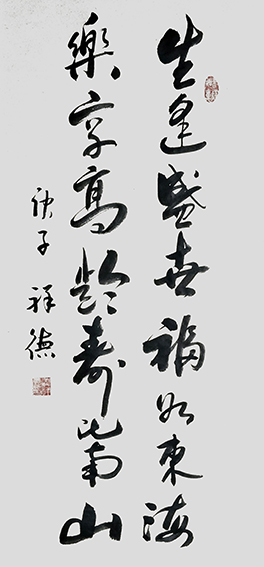 生逢盛世福如東海
樂享高齡壽比南山
庚子 祥德